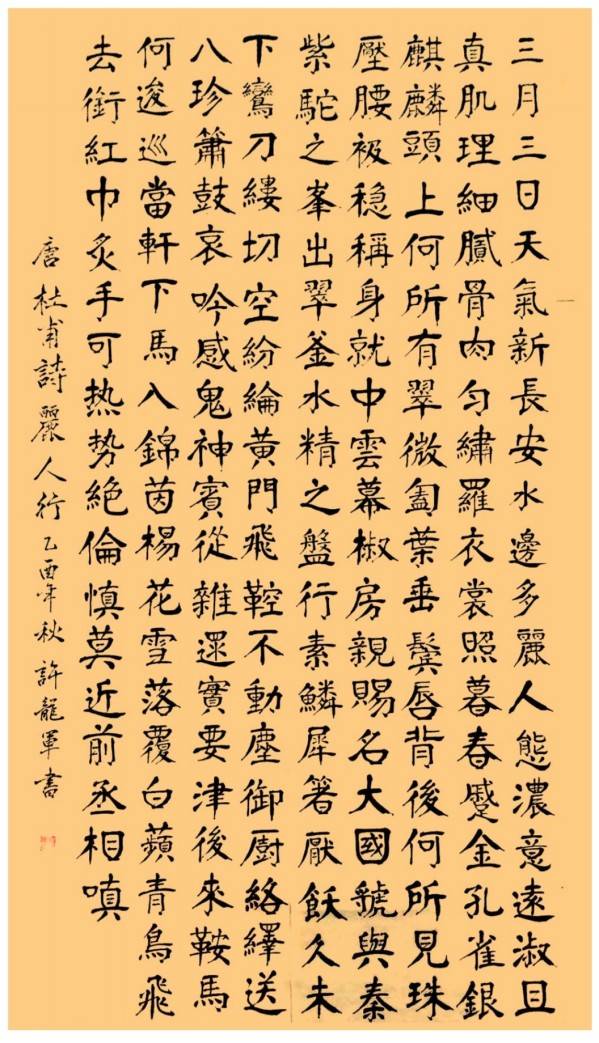 三月三日天氣新長安水邊多麗人態濃意遠淑且
真肌理細膩骨肉匀繡羅衣裳照暮春蹙金孔雀銀
麒麟頭上何所有翠微匎葉垂鬓唇背後何所見珠
壓腰衱稳稱身就中雲幕椒房親賜名大國虢與秦
紫駝之峯出翠釜水精之盤行素鱗犀箸厭飫久未
下鸞刀縷切空紛綸黄門飛鞚不動塵御厨絡繹送
八珍簫鼓哀吟感鬼神賓從雜遝實要津後來鞍馬
何逡巡當軒下馬入錦茵楊花雪落覆白蘋青鳥飛
去銜紅巾炙手可热势絶倫慎莫近前丞相嗔
唐杜甫詩麗人行乙酉年秋許龍軍書